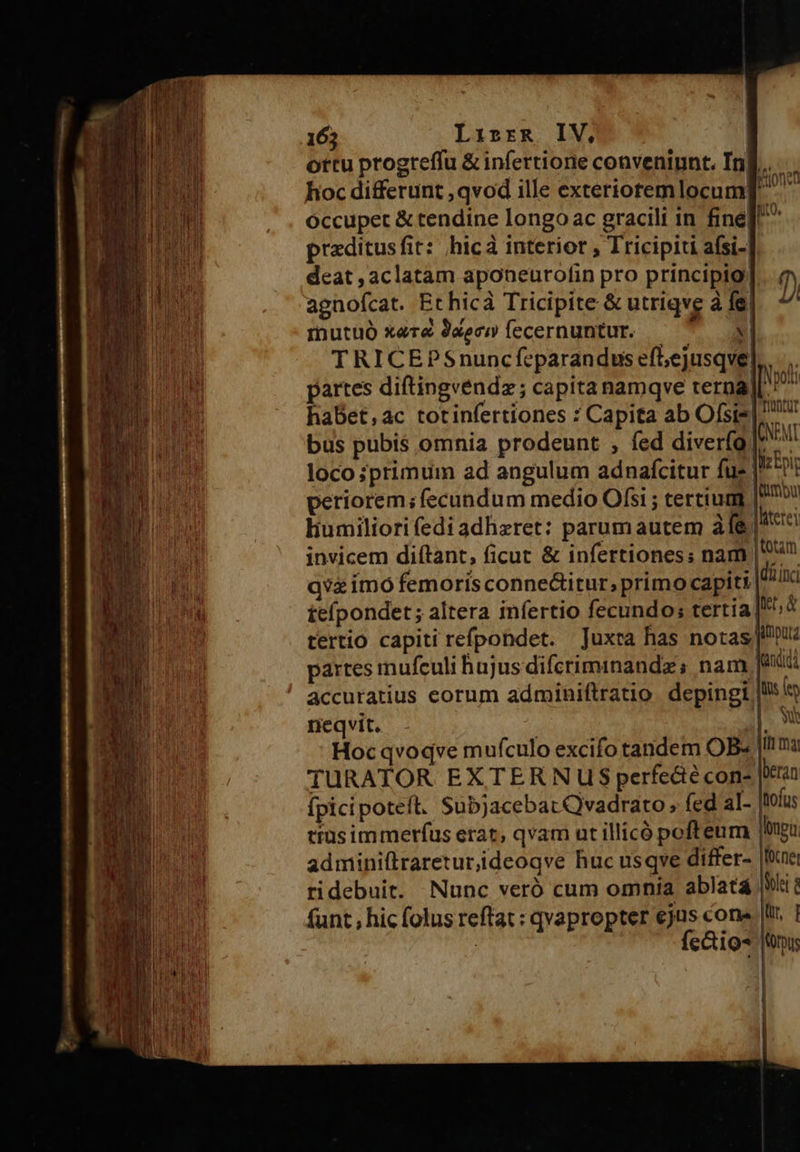 163 LIBER IV,
ortu progreſſu & inſertione conveniunt. In
hoc differunt, qvod ille exteriorem locum
occupet & tendine longo ac gracili in fine
præditus ſit: hic à interior, Tricipiti aſsi-
deat, ac latam aponeuroſin pro principio
agnoſcat. Et hic à Tricipite & utriqve à ſe
mutuò κατὰ θέσιν ſecernuntur.
TRICEPS nunc ſeparandus eſt, ejusqve
partes diſtingvendæ; capita namqve terna
habet, ac tot inſertiones: Capita ab Oſsi-
bus pubis omnia prodeunt, ſed diverſo
loco; primum ad angulum adnaſcitur ſu-
periorem; ſecundum medio Oſsi; tertium
humiliori ſedi adhæret: parum autem à ſe
invicem diſtant, ſicut & inſertiones; nam
qvæ imo femoris connectitur, primo capiti
reſpondet; altera inſertio ſecundo; tertia
tertio capiti reſpondet. Juxta has notas
partes muſculi hujus diſcriminandæ; nam
accuratius eorum adminiſtratio depingi
neqvit.
Hoc qvoqve muſculo exciſo tandem OB-
TURATOR EXTERNUS perfectè con-
ſpici poteſt. Subjacebat Qvadrato, ſed al-
tius immerſus erat, qvam ut illicò poſt eum
adminiſtraretur, ideoqve huc usqve differ-
ri debuit. Nunc verò cum omnia ablata
ſunt, hic ſolus reſtat: qvapropter ejus con-
ſectio-